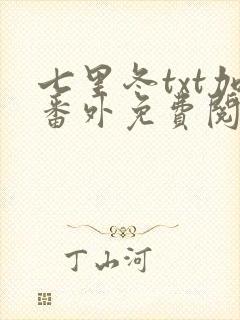 七里冬txt加
番外免費閱
丁山河